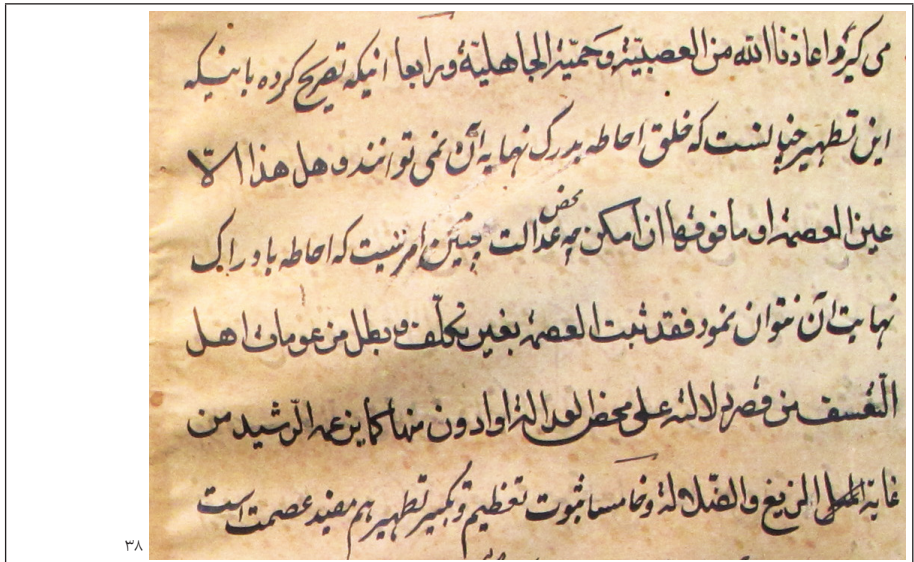 می گیرد اعاذنا الله من العصبیّة وحمیّة الجاهلیّة ورابعا انیکه تصریح کرده باینکه
این تطهیر چنانست که خلق احاطه بدرک نهایه آن نمی توانند و هل هذا الّا
عین العصمة او ما فوقها ان امکن چه محض عدالت چنین امر نیست که احاطه بادراک
نهایت آن نتوان نمود فقد ثبت العصمة بغیر تکلّف و بطل مزعومات اهل
التّعسف من قصر دلالته علی محض العدالة او ادون منها کما یزعمه الرّشید من
غایة الزیغ والضّلالة وخامسا ثبوت تعظیم و تکبیر تطهیر هم مفید عصمت است
۳۸